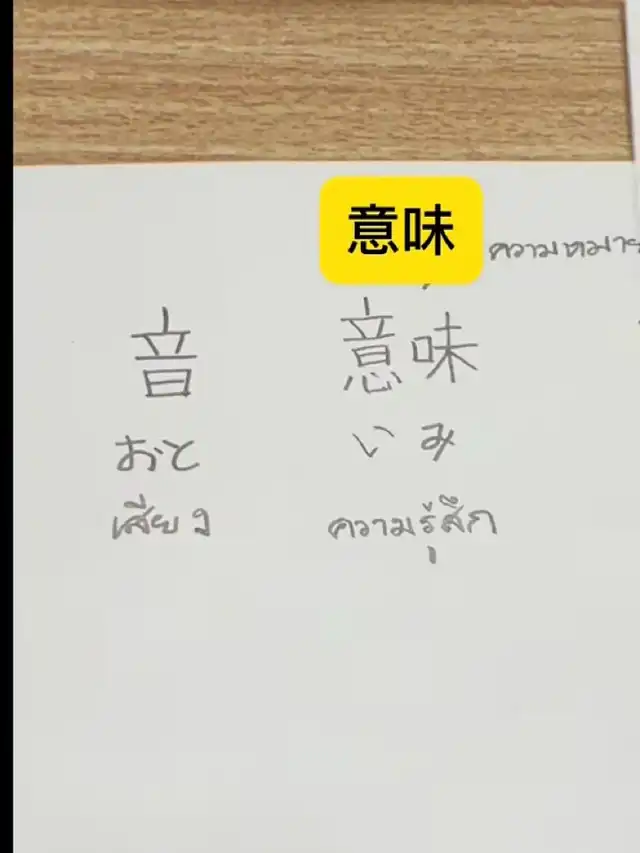 意味
ความหมาย
音 意味
おと いみ
เสียง ความรู้สึก